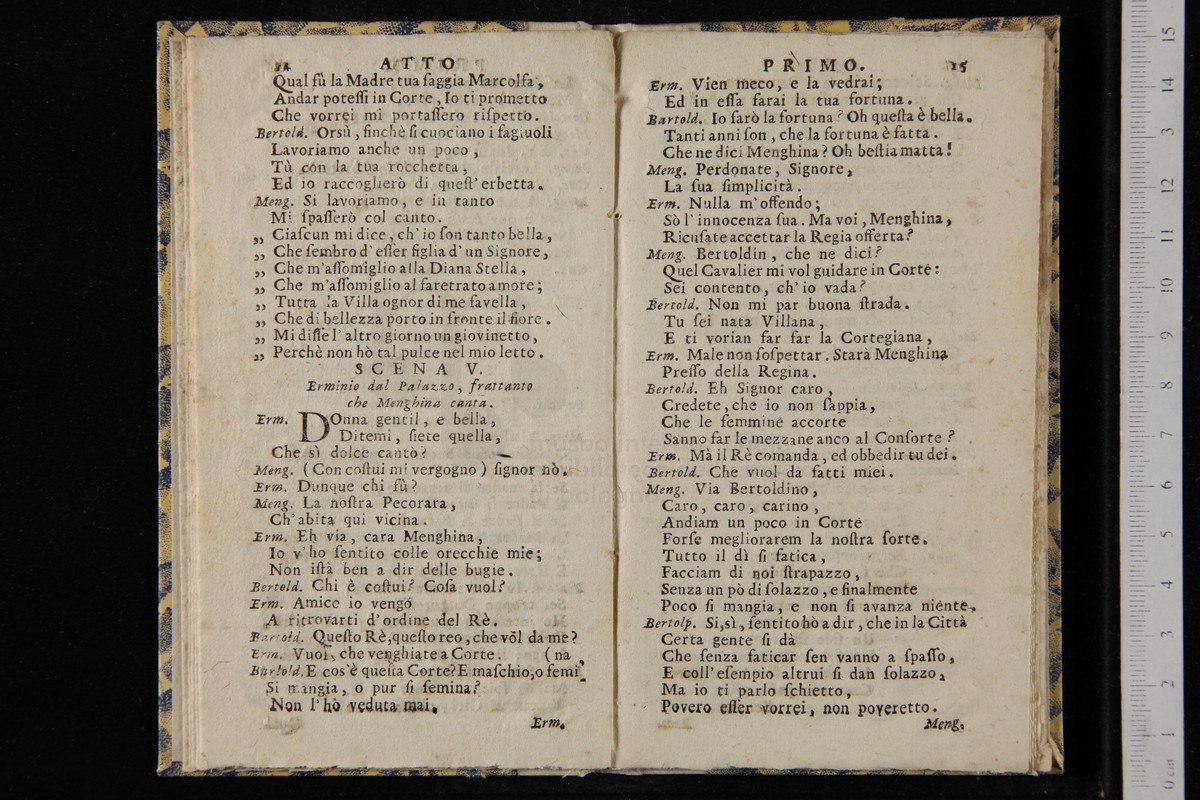 ATTO
Qual fù la Madre tua ſaggia Marcolfa,
Andar poteſſi in Corte, Io ti prometto
Che vorrei mi portaſſero riſpetto.
Bertold. Orsù, finchè ſi cuociano i fagiuoli
Lavoriamo anche un poco,
Tù con la tua rocchetta,
Ed io raccoglierò di queſt'erbetta.
Meng. Si lavoriamo, e in tanto
Mi ſpaſſerò col canto.
„ Ciaſcun mi dice, ch'io ſon tanto bella,
„ Che ſembro d'eſſer figlia d'un Signore,
„ Che m'aſſomiglio alla Diana Stella,
„ Che m'aſſomiglio al faretrato amore;
„ Tutta la Villa ognor di me favella,
„ Che di bellezza porto in fronte il fiore.
„ Mi diſſe l'altro giorno un giovinetto,
„ Perchè non hò tal pulce nel mio letto.
SCENA V.
Erminio dal Palazzo, frattanto
che Menghina canta.
Erm. DOnna gentil, e bella,
Ditemi, ſiete quella,
Che sì dolce cantò?
Meng. (Con coſtui mi vergogno) ſignor nò.
Erm. Dunque chi fù?
Meng. La noſtra Pecorara,
Ch'abita qui vicina.
Erm. Eh via, cara Menghina,
Io v'ho ſentito colle orecchie mie;
Non iſtà ben a dir delle bugie.
Bertold. Chi è coſtui? Coſa vuol?
Erm. Amico io vengo
A ritrovarti d'ordine del Rè.
Bertold. Queſto Rè, queſto reo, che vòl da me?
Erm. Vuol, che venghiate a Corte. (na
Bertold. E cos'è queſta Corte? E maſchio, o femi-
Si mangia, o pur ſi ſemina?
Non l'hò veduta mai.
Erm.
PRIMO. 15
Erm. Vien meco, e la vedrai;
Ed in eſſa farai la tua fortuna.
Bartold. Io farò la fortuna? Oh queſta è bella.
Tanti anni ſon, che la fortuna è fatta.
Che ne dici Menghina? Oh beſtia matta!
Meng. Perdonate, Signore,
La ſua ſimplicità.
Erm. Nulla m'offendo;
Sò l'innocenza ſua. Ma voi, Menghina,
Ricuſate accettar la Regia offerta?
Meng. Bertoldin, che ne dici?
Quel Cavalier mi vol guidare in Corte:
Sei contento, ch'io vada?
Bertold. Non mi par buona ſtrada.
Tu ſei nata Villana,
E ti vorian far far la Cortegiana,
Erm. Male non ſoſpettar. Starà Menghina
Preſſo della Regina.
Bertold. Eh Signor caro,
Credete, che io non ſappia,
Che le femmine accorte
Sanno far le mezzane anco al Conſorte?
Erm. Mà il Rè comanda, ed obbedir tu dei.
Bertold. Che vuol da fatti miei.
Meng. Via Bertoldino,
Caro, caro, carino,
Andiam un poco in Corte
Forſe megliorarem la noſtra ſorte.
Tutto il dì ſi fatica,
Facciam di noi ſtrapazzo,
Senza un pò di ſolazzo, e finalmente
Poco ſi mangia, e non ſi avanza niente.
Bertolp. Si, sì, ſentito hò a dir, che in la Città
Certa gente ſi dà
Che ſenza faticar ſen vanno a ſpaſſo,
E coll'eſempio altrui ſi dan ſolazzo,
Ma io ti parlo ſchietto,
Povero eſſer vorrei, non poveretto.
Meng.